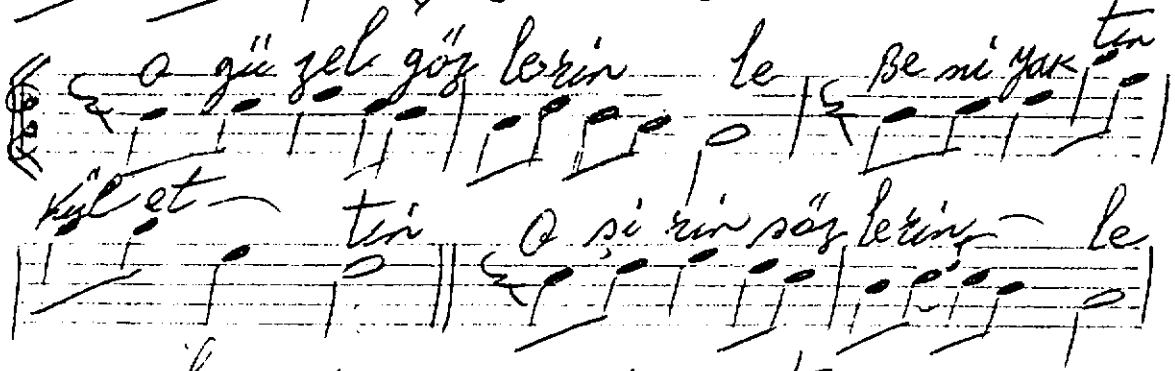 O gü zel göz lerin le Be ni yak tın
kül et tin O şi rin söz lerin le